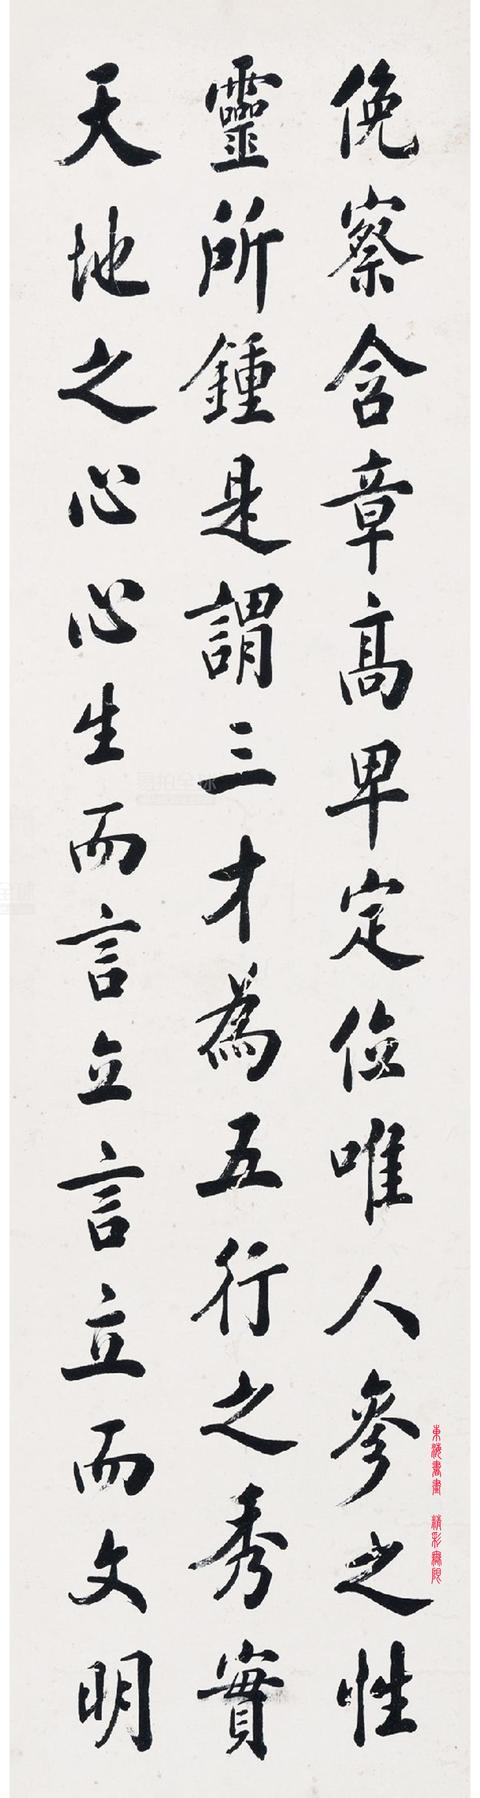 俛察含章高卑定位唯人參之性
靈所鍾是謂三才為五行之秀實
天地之心心生而言立言立而文明
東海書畫 精彩無限
易拍全球